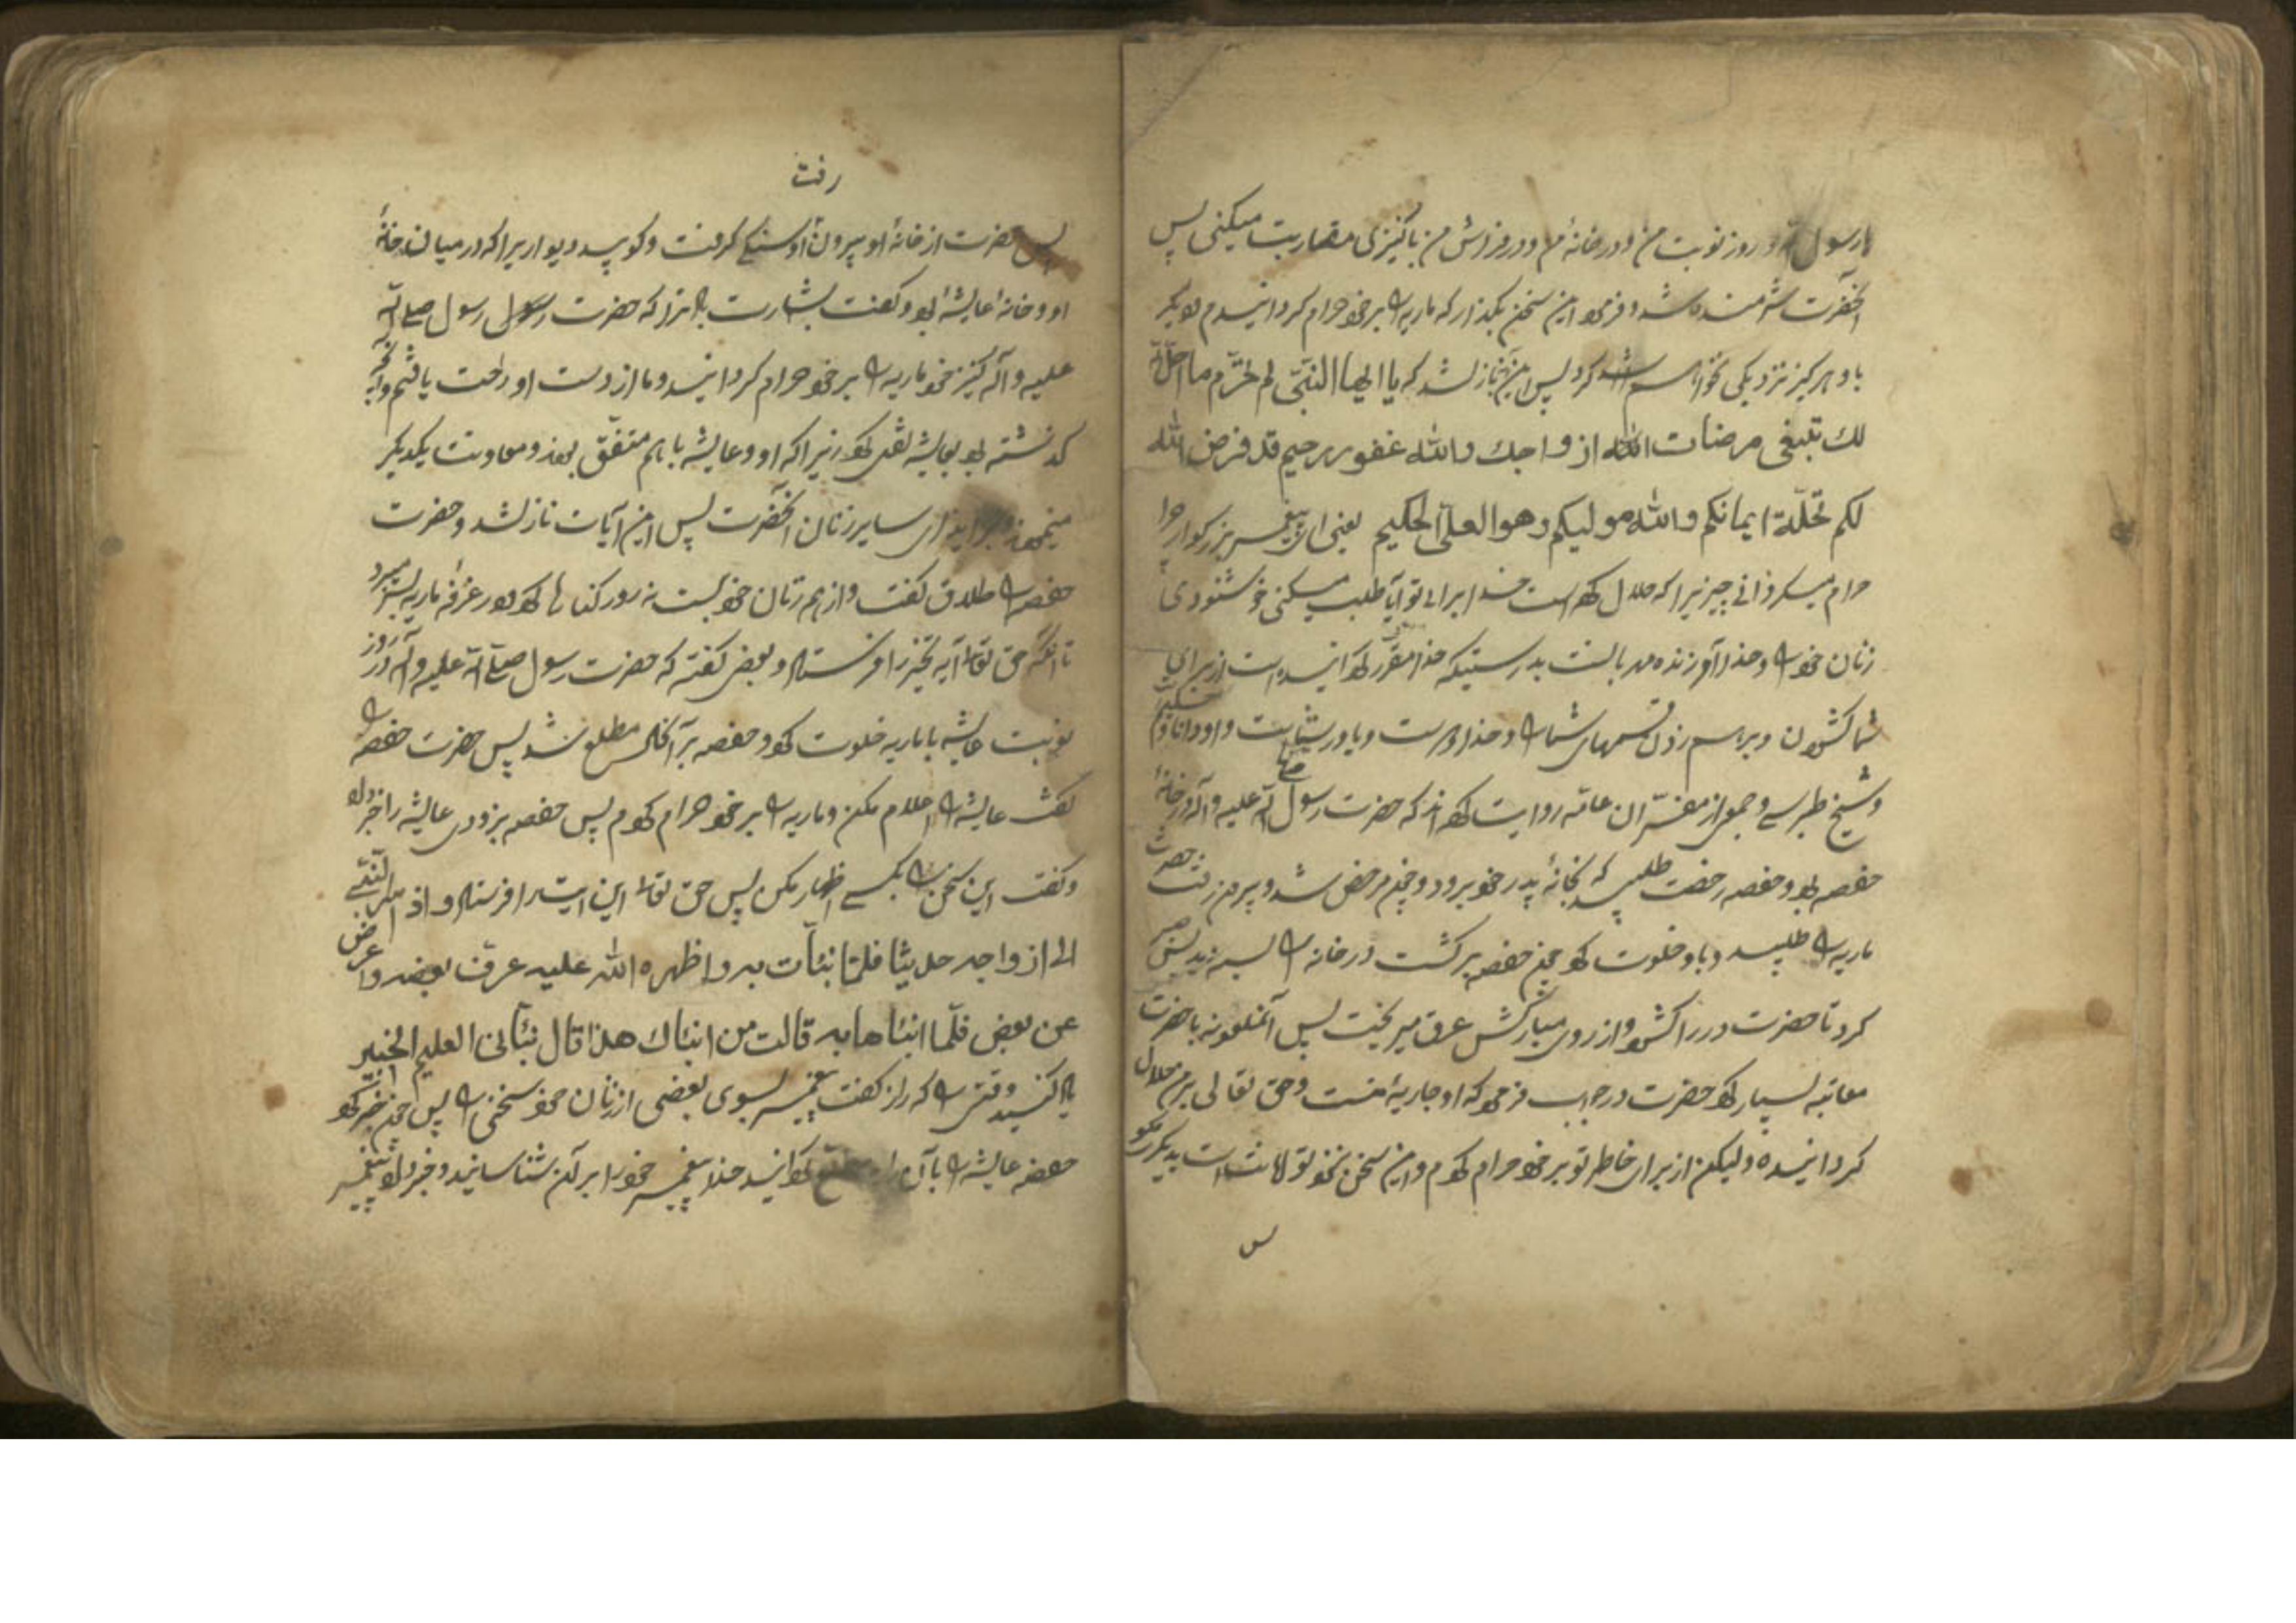 یا رسول الله در روز نوبت من و در خانهٔ من و در فراش من با کنیزکی مقاربت میکنی پس
آنحضرت شرمنده شد و فرمود این سخن بگذار که ماریه را بر خود حرام گردانیدم و دیگر
با و هرگز نزدیکی نخواهم کرد پس این آیه نازل شد که یا ایها النبی لم تحرّم ما احلّ الله
لك تبتغی مرضات ازواجك والله غفور رحیم قد فرض الله
لکم تحلّة ایمانکم والله مولیکم وهو العلیم الحکیم یعنی ای پیغمبر بزرگوار چرا
حرام میگردانی چیزیرا که حلال کرده است خدا برای تو آیا طلب میکنی خوشنودی
زنان خود را و خدا آمرزنده مهربانست بدرستیکه خدا مقرر گردانیده است از برای
شما کشودن و برهم زدن قسمهای شما را و خداوند و یاور شماست و او دانا و حکیم
و شیخ طبرسی و جمعی از مفسّران عامّه روایت کرده‌اند که حضرت رسول صلی الله علیه و آله در خانهٔ
حفصه بود و حفصه رخصت طلبید که بخانهٔ پدر خود برود و چون مرخص شد و بیرون رفت حضرت
ماریه را طلبید و با او خلوت کرد چون حفصه برگشت در خانه را بسته دید پس صبر
کرد تا حضرت در را کشود و از روی مبارکش عرق میریخت پس آنملعونه با حضرت
معاتبه بسیار کرد حضرت در جواب فرمود که او جاریهٔ منست و حق تعالی بر من حلال
گردانیده ولیکن از برای خاطر تو بر خود حرام کردم و این سخن نزد تو امانت است بدیگری مگو
س
رفت
پس حضرت از خانهٔ او بیرون او سنگی گرفت و کوبید دیواریرا که در میان خانهٔ
او و خانهٔ عایشه بود و گفت بشارت باد ترا که حضرت رسول صلی الله
علیه و آله کنیز خود ماریه را بر خود حرام گردانید و ما از دست او راحت یافتیم و آنچه
گذشته بود بعایشه نقل کرد زیرا که او و عایشه با هم متفق بودند و معاونت یکدیگر
مینمودند بر ایذای سایر زنان آنحضرت پس این آیات نازل شد و حضرت
حفصه را طلاق گفت و از همه زنان خود بیست نه روز کناره کرد و در غرفهٔ ماریه بسر میبرد
تا آنکه حق تعالی آیه تخییر را فرستاد و بعضی گفته که حضرت رسول صلی الله علیه و آله در روز
نوبت عایشه با ماریه خلوت کرد و حفصه بر آنحال مطلع شد پس حضرت حفصه را
گفت عایشه را اعلام مکن و ماریه را بر خود حرام کردم پس حفصه بزودی عایشه را خبر داد
و گفت این سخن را بکسی اظهار مکن پس حق تعالی این ایت را فرستاد و اذ اسرّ النبی
الی ازواجه حدیثا فلمّا نبّأت به واظهره الله علیه عرّف بعضه واعرض
عن بعض فلمّا انبّئاها به قالت من انبئاك هذا قال نبّأنی العلیم الخبیر
یاد کنید وقتی را که راز گفت پیغمبر بسوی بعضی از زنان خود سخنی را پس چون خبر کرد
حفصه عایشه را بآن راز مطلع گردانید خدا پیغمبر خود را بر آن شناسانید و خبر داد پیغمبر